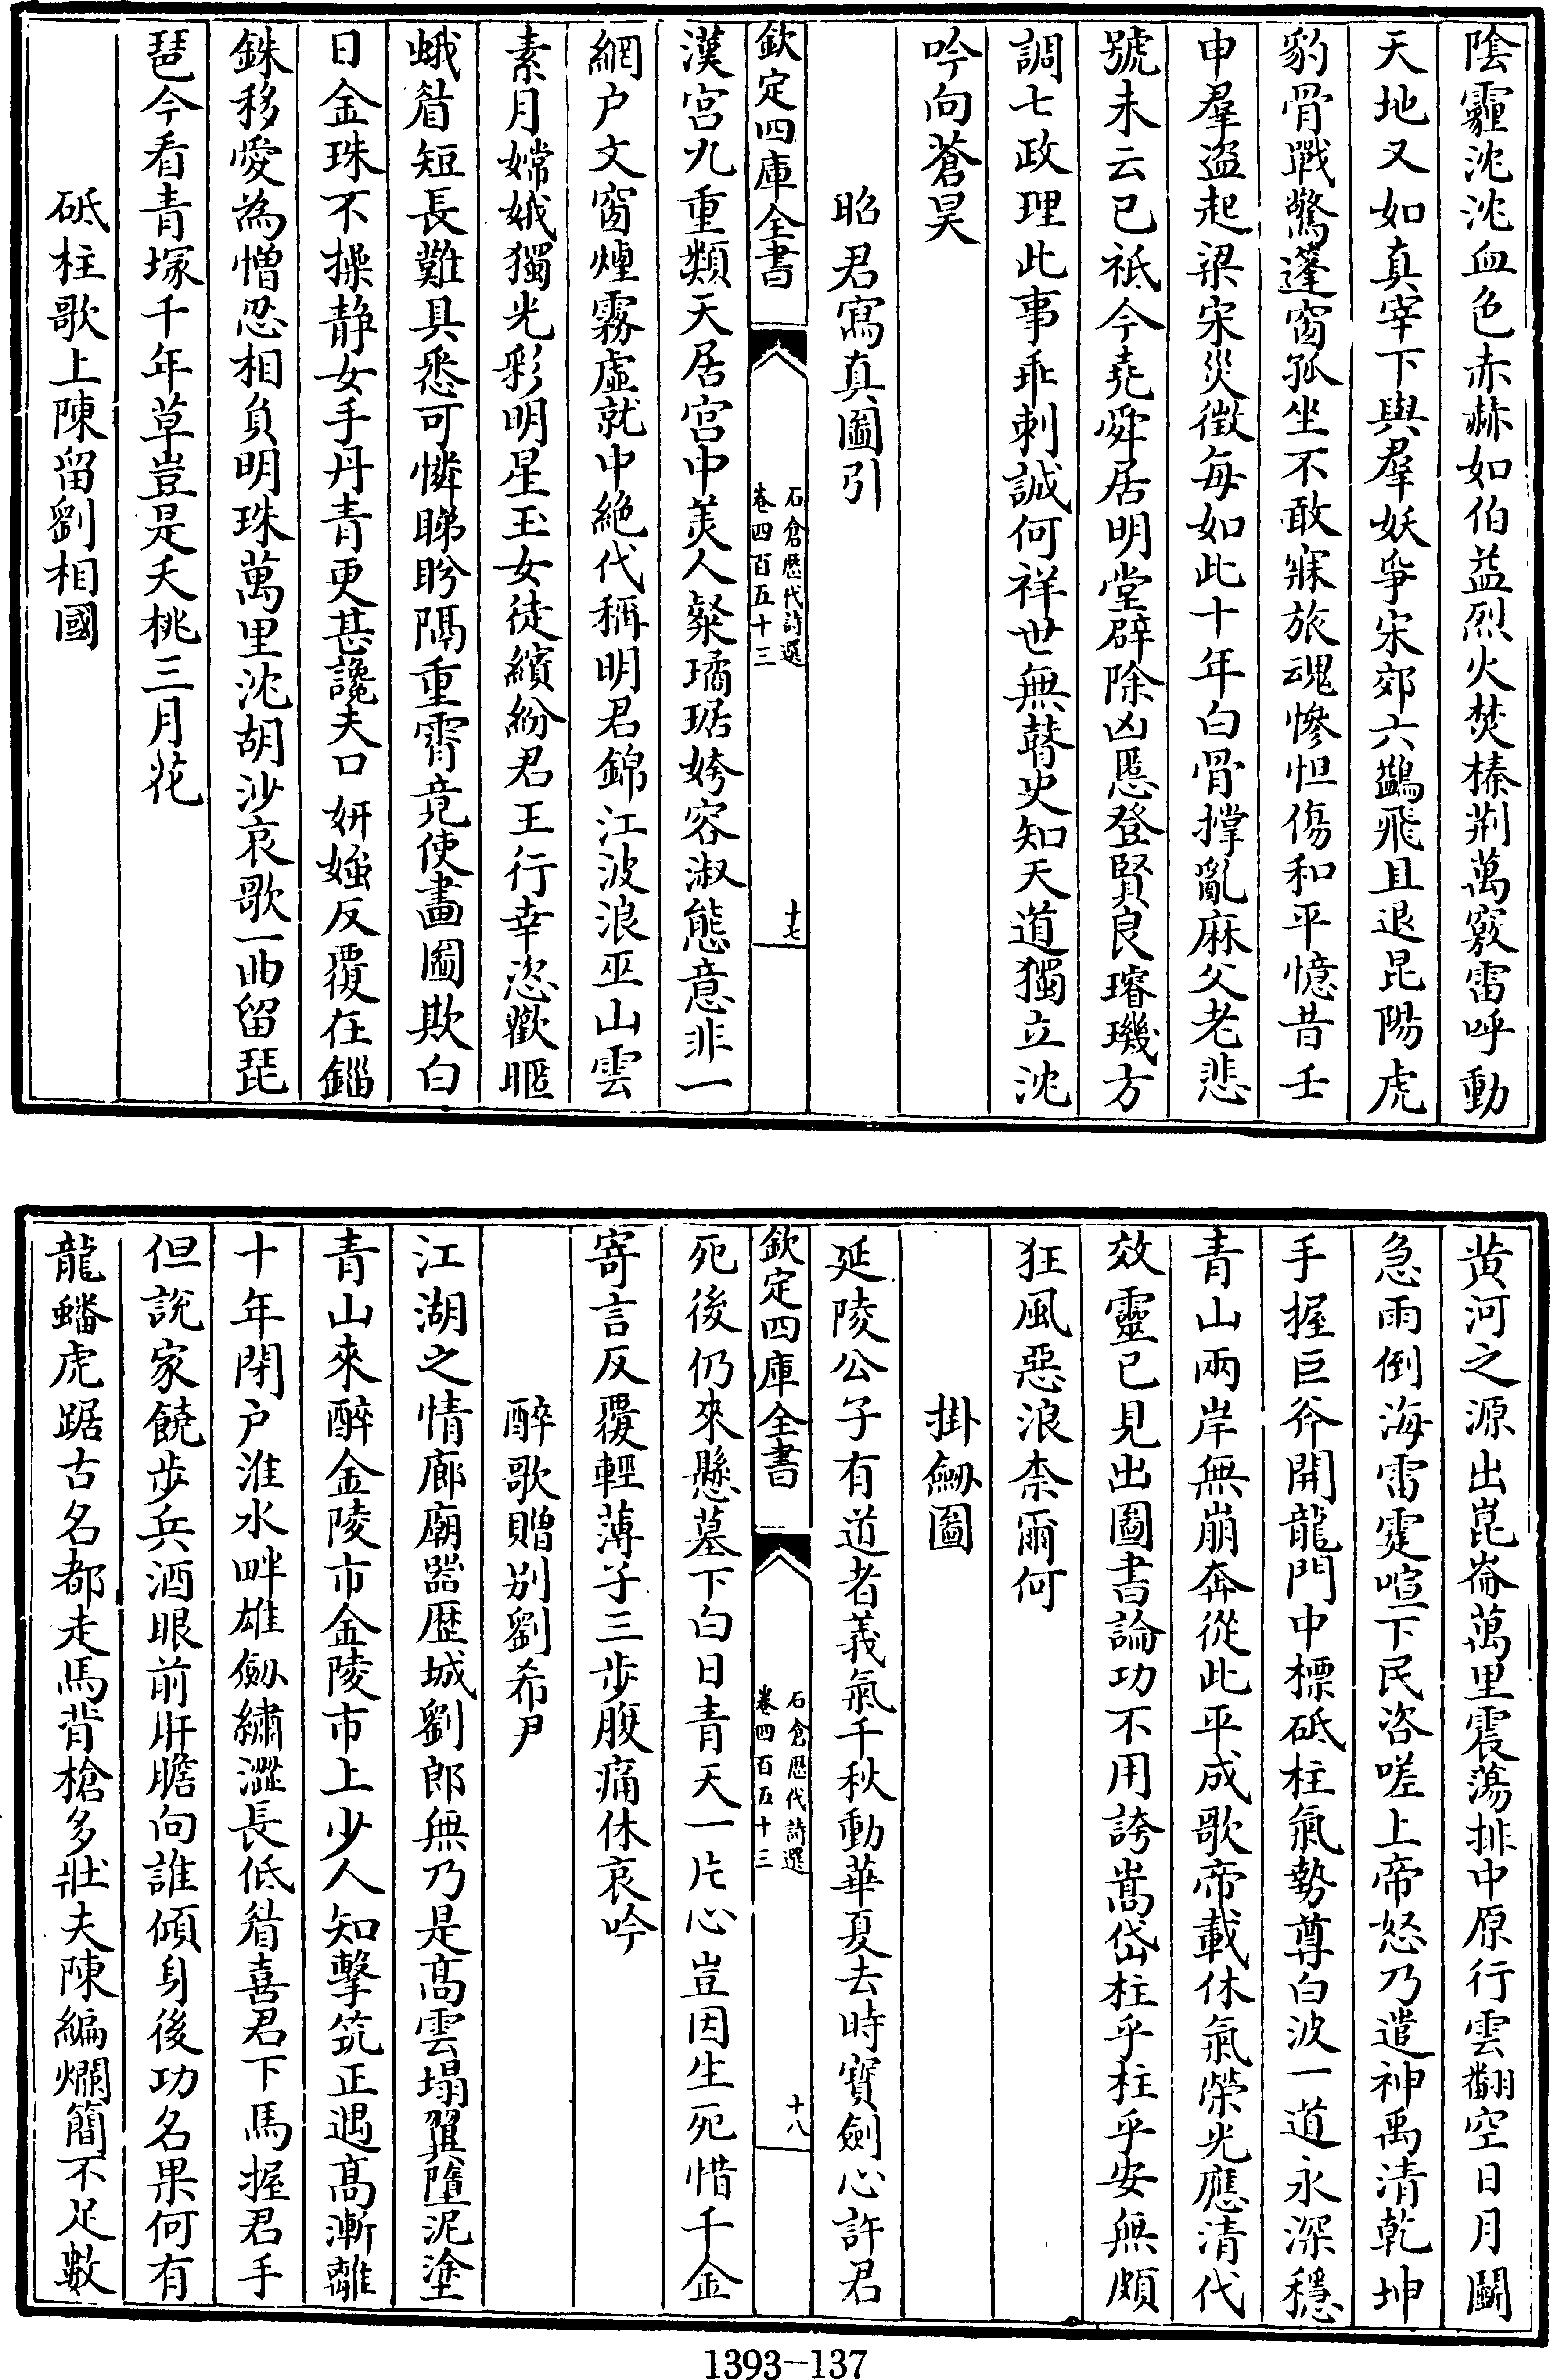 陰霾沈沈血色赤赫如伯益烈火焚榛荆萬竅雷呼動
天地又如真宰下與羣妖爭宋郊六鷁飛且退昆陽虎
豹骨戰驚蓬窗孤坐不敢寐旅魂慘怛傷和平憶昔壬
申羣盗起梁宋災徵每如此十年白骨撑亂麻父老悲
號未云已祗今堯舜居明堂辟除凶慝登賢良璿璣方
調七政理此事乖刺誠何祥世無瞽史知天道獨立沈
吟向蒼昊
昭君寫真圖引
欽定四庫全書
石倉歷代詩選
卷四百五十三
十七
漢宫九重類天居宫中美人粲璚琚姱容淑態意非一
網户文窗煙霧虛就中絶代稱明君錦江波浪巫山雲
素月嫦娥獨光彩明星玉女徒繽紛君王行幸恣歡暱
蛾眉短長難具悉可憐睇盼隔重霄竟使畫圖欺白
日金珠不操静女手丹青更甚讒夫口妍媸反覆在錙
銖移愛為憎忍相負明珠萬里沈胡沙哀歌一曲留琵
琶今看青塚千年草豈是夭桃三月花
砥柱歌上陳留劉相國
黄河之源出崑崙萬里震蕩排中原行雲翻空日月鬭
急雨倒海雷霆喧下民咨嗟上帝怒乃遣神禹清乾坤
手握巨斧開龍門中標砥柱氣勢尊白波一道永深穩
青山兩岸無崩奔從此平成歌帝載休氣榮光應清代
效靈已見出圖書論功不用誇嵩岱柱乎柱乎安無頗
狂風惡浪柰爾何
掛劒圖
延陵公子有道者義氣千秋動華夏去時寶劍心許君
欽定四庫全書
石倉歷代詩選
卷四百五十三
十八
死後仍來懸墓下白日青天一片心豈因生死惜千金
寄言反覆輕薄子三步腹痛休哀吟
醉歌贈别劉希尹
江湖之情廊廟器歷城劉郎無乃是高雲塌翼墮泥塗
青山來醉金陵市金陵市上少人知擊筑正遇高漸離
十年閉户淮水畔雄劒繡澀長低眉喜君下馬握君手
但說家饒步兵酒眼前肝膽向誰傾身後功名果何有
龍蟠虎踞古名都走馬背槍多壯夫陳編爛簡不足數
1393-137